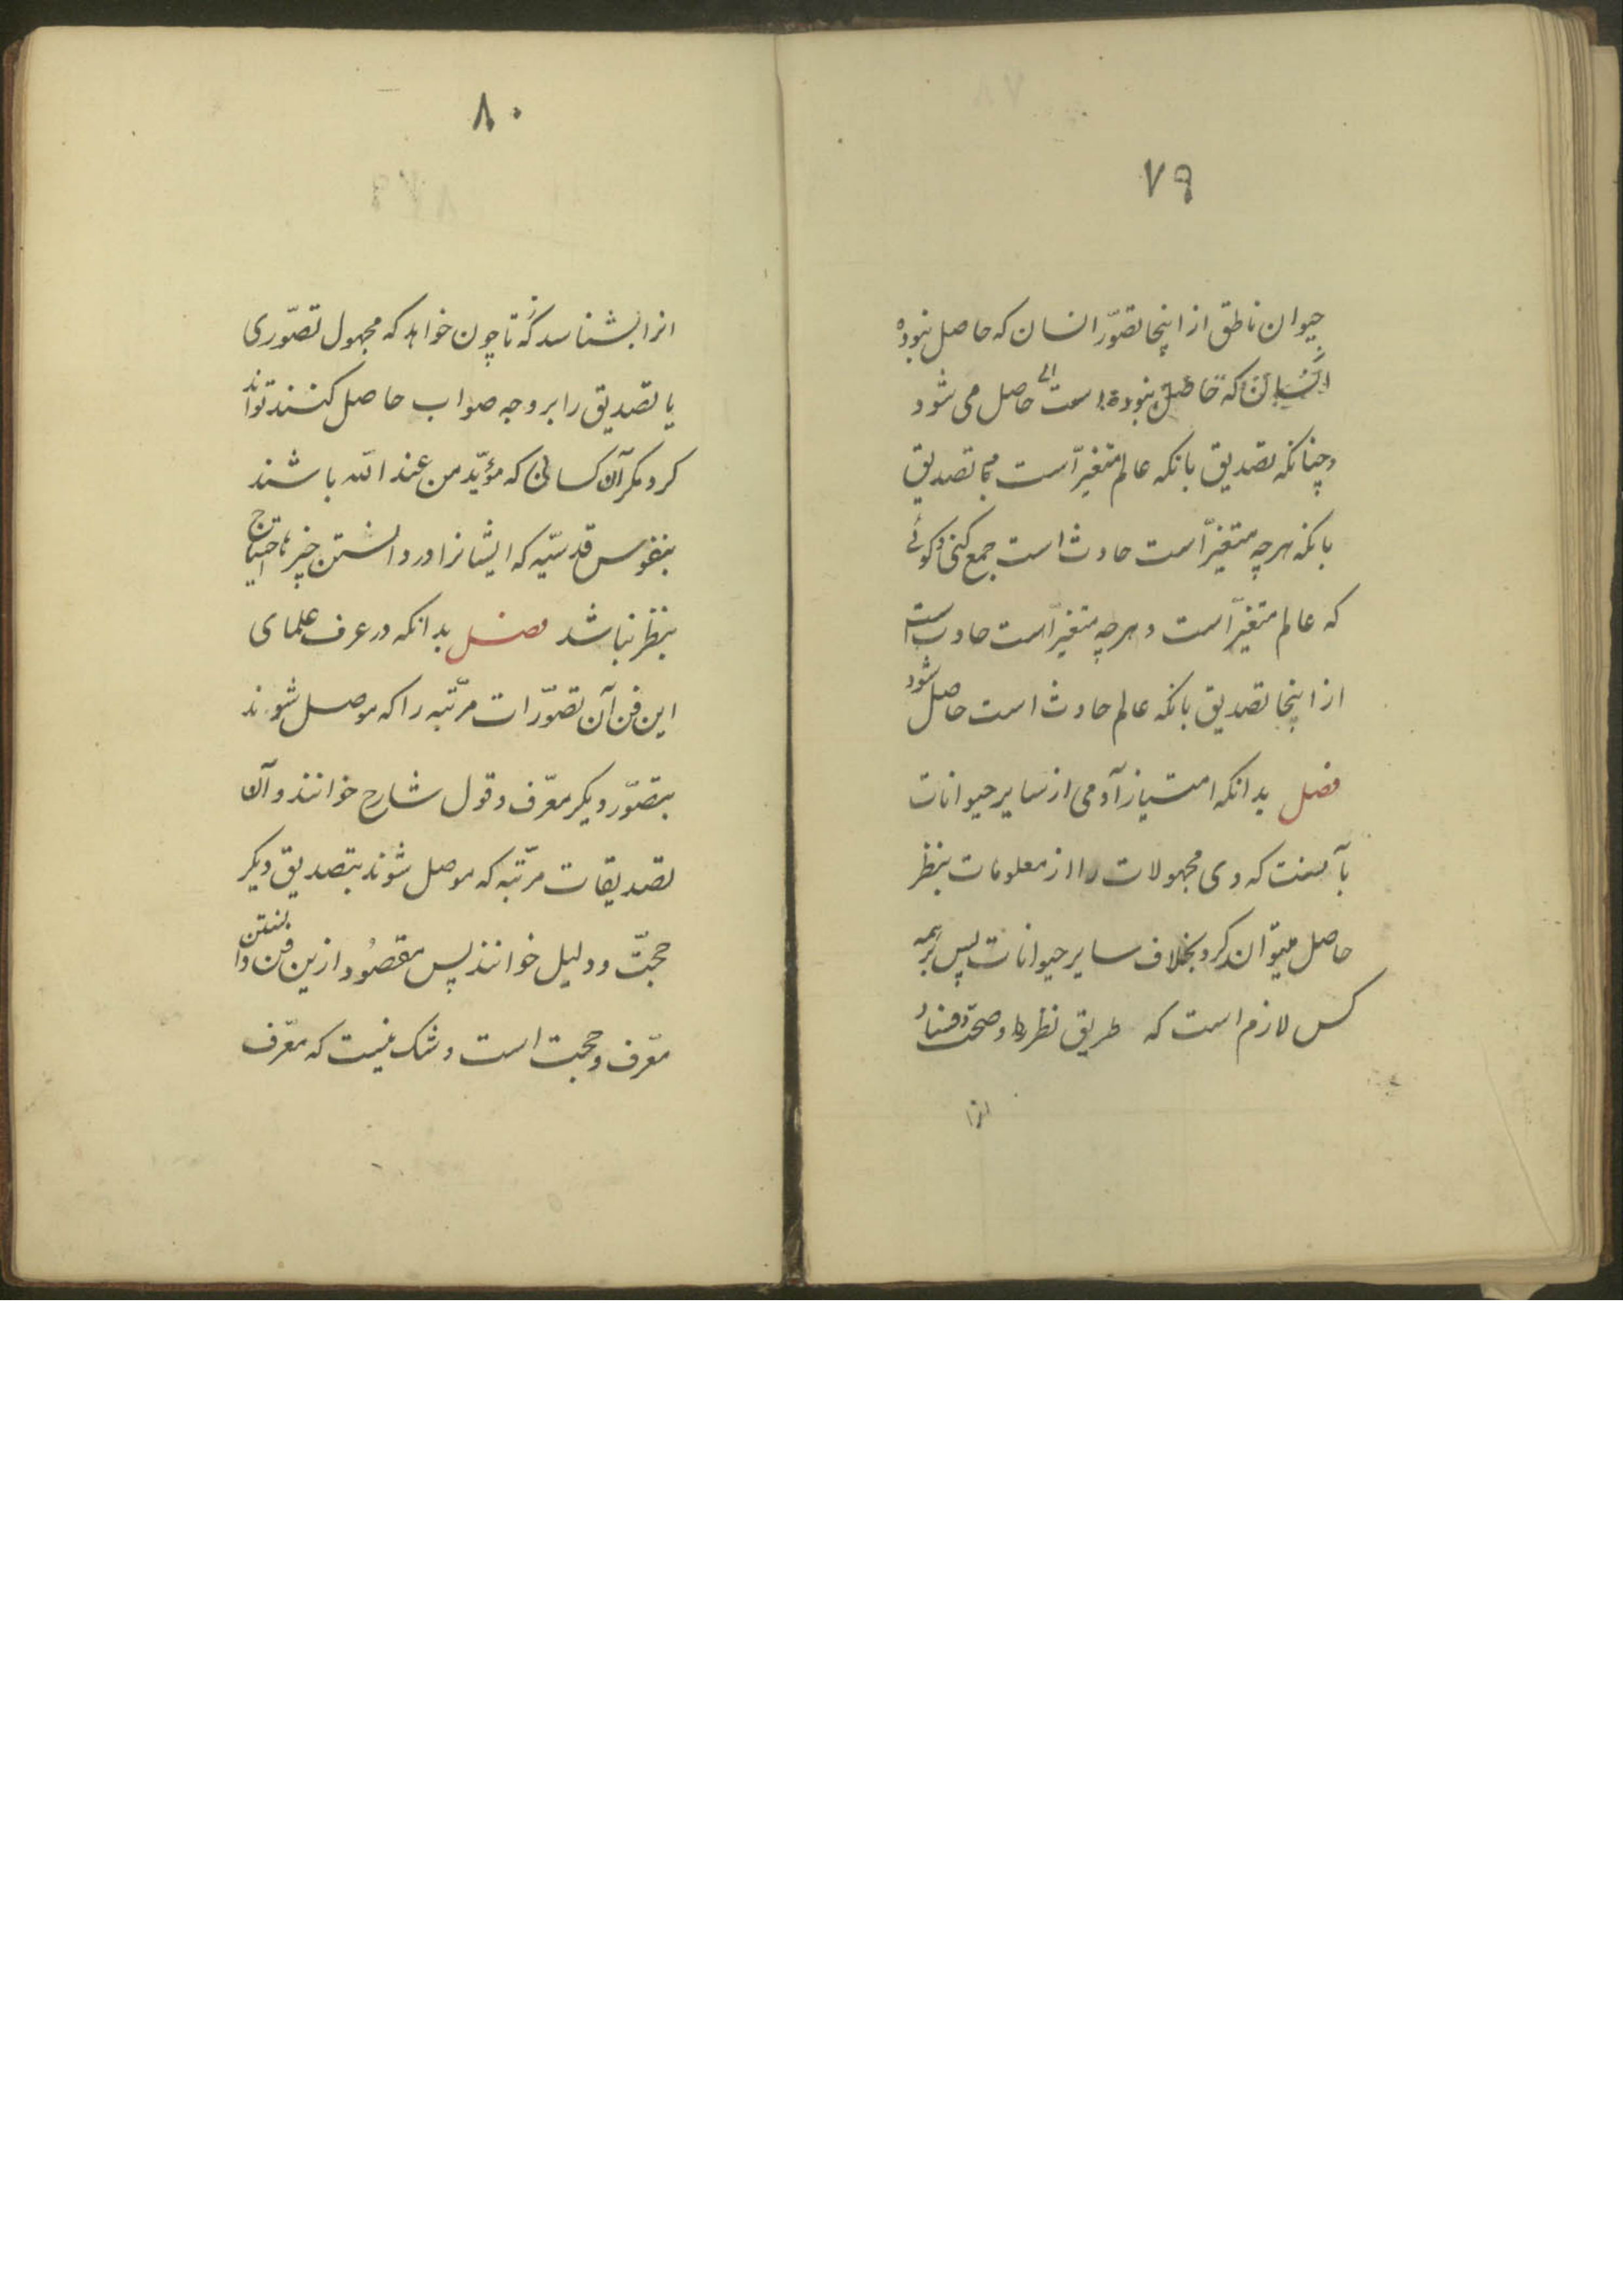 ٧٩
حیوان ناطق از اینجا تصوّر انسان که حاصل نبوده
انسان که حاصل نبوده است حاصل می شود
و چنانکه تصدیق بانکه عالم متغیّر است با تصدیق
بانکه هرچه متغیّر است حادث است جمع کنی و کوئی
که عالم متغیّر است و هرچه متغیّر است حادث است
از اینجا تصدیق بانکه عالم حادث است حاصل شود
فصل بدانکه امتیاز آدمی از سایر حیوانات
بآنست که وی مجهولات را از معلومات بنظر
حاصل میتوان کرد بخلاف سایر حیوانات پس بر همه
کس لازم است که طریق نظر را و صحت و فساد
انرا
٨٠
انرا بشناسد تا چون خواهد که مجهول تصوّری
یا تصدیق را بر وجه صواب حاصل کنند تواند
کرد مکر آن کسانی که مؤیّد من عند اللّه باشند
بنفوس قدسیّه که ایشانرا در دانستن چیزها احتیاج
بنظر نباشد فصل بدانکه در عرف علمای
این فن آن تصوّرات مرتّبه را که موصل شوند
بتصوّر دیکر معرّف و قول شارح خوانند و آن
تصدیقات مرتّبه که موصل شوند بتصدیق دیکر
حجّت و دلیل خوانند پس مقصُود ازین فن دانستن
معرّف و حجّت است و شک نیست که معرّف